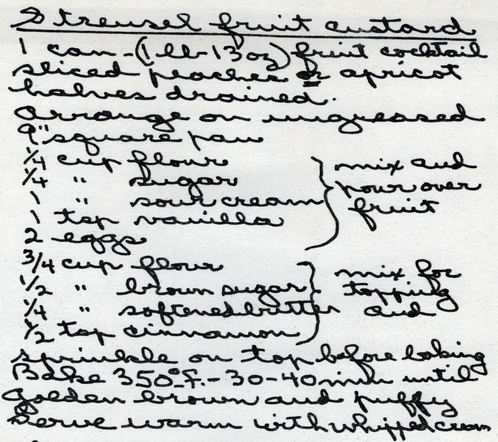 Streusel fruit custard
1 can - (1 lb-13 oz) fruit cocktail
sliced peaches or apricot
halves drained.
Arrange on ungreased
9" square pan
1/4 cup flour
1/4 " sugar
1 " sour cream
1 tsp vanilla
2 eggs
} mix and
pour over
fruit
3/4 cup flour
1/2 " brown sugar
1/4 " softened butter
1/2 tsp cinnamon
} mix for
topping
and
sprinkle on top before baking
Bake 350° f. - 30-40 min until
golden brown and puffy
Serve warm with whipped cream